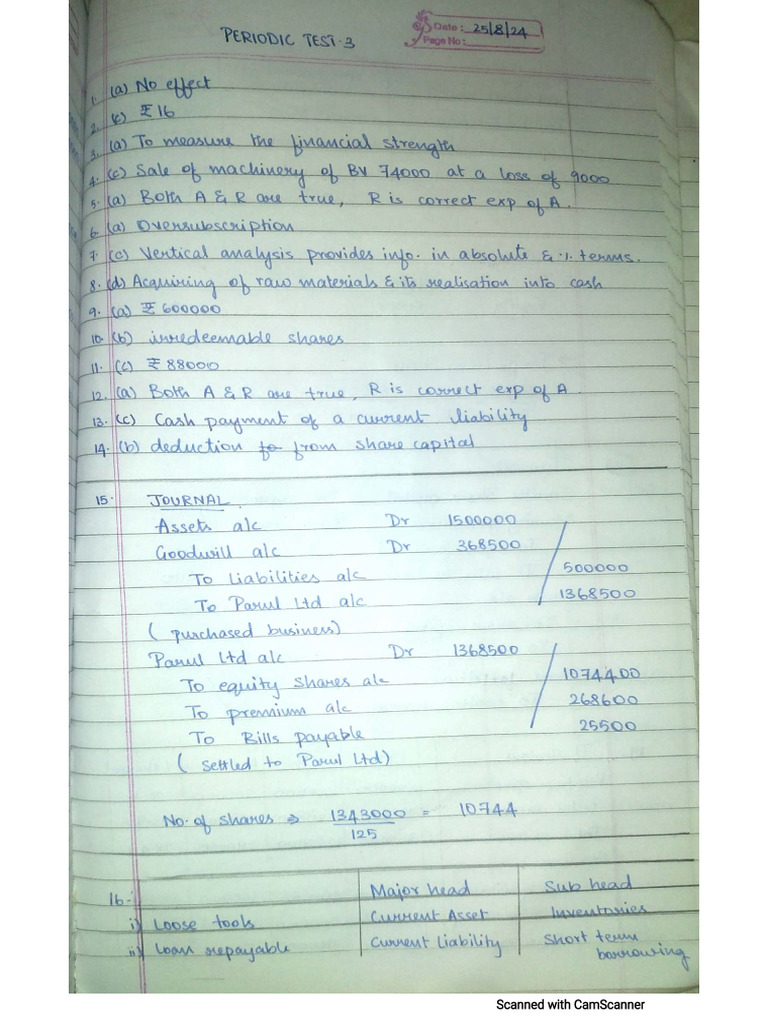 PERIODIC TEST-3
Date: 25/8/24
Page No:
1. (a) No effect
2. (c) ₹16
3. (a) To measure the financial strength
4. (c) Sale of machinery of BV 74000 at a loss of 9000
5. (a) Both A & R are true, R is correct exp of A.
6. (a) Oversubscription
7. (c) Vertical analysis provides info. in absolute & %. terms.
8. (d) Acquiring of raw materials & its realisation into cash
9. (a) ₹600000
10. (b) irredeemable shares
11. (c) ₹88000
12. (a) Both A & R are true, R is correct exp of A.
13. (c) Cash payment of a current liability
14. (b) deduction from share capital
15. JOURNAL
Assets a/c Dr 1500000
Goodwill a/c Dr 368500
To Liabilities a/c 500000
To Parul Ltd a/c 1368500
( purchased business)
Parul Ltd a/c Dr 1368500
To equity shares a/c 1074400
To premium a/c 268600
To Bills payable 25500
( Settled to Parul Ltd)
No. of shares ⇒ 1343000 = 10744
125
16. Major head Sub head
i) Loose tools Current Asset Inventories
ii) Loan repayable Current Liability Short term
borrowing
Scanned with CamScanner